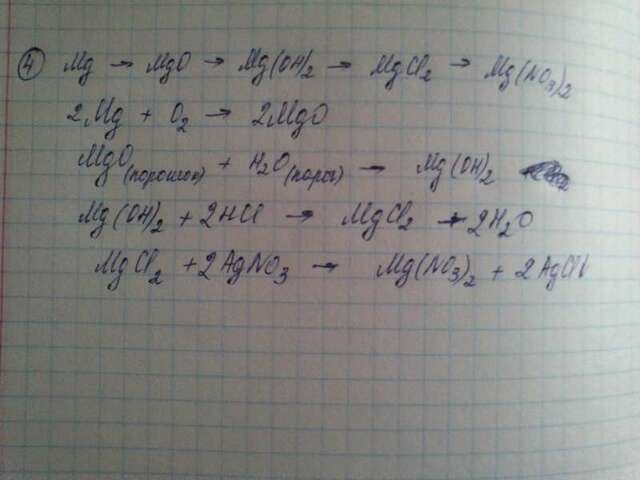 ④ Mg → MgO → Mg(OH)2 → MgCl2 → Mg(NO3)2
2Mg + O2 → 2MgO
MgO(порошок) + H2O → Mg(OH)2
Mg(OH)2 + 2HCl → MgCl2 + 2H2O
MgCl2 + 2AgNO3 → Mg(NO3)2 + 2AgCl↓